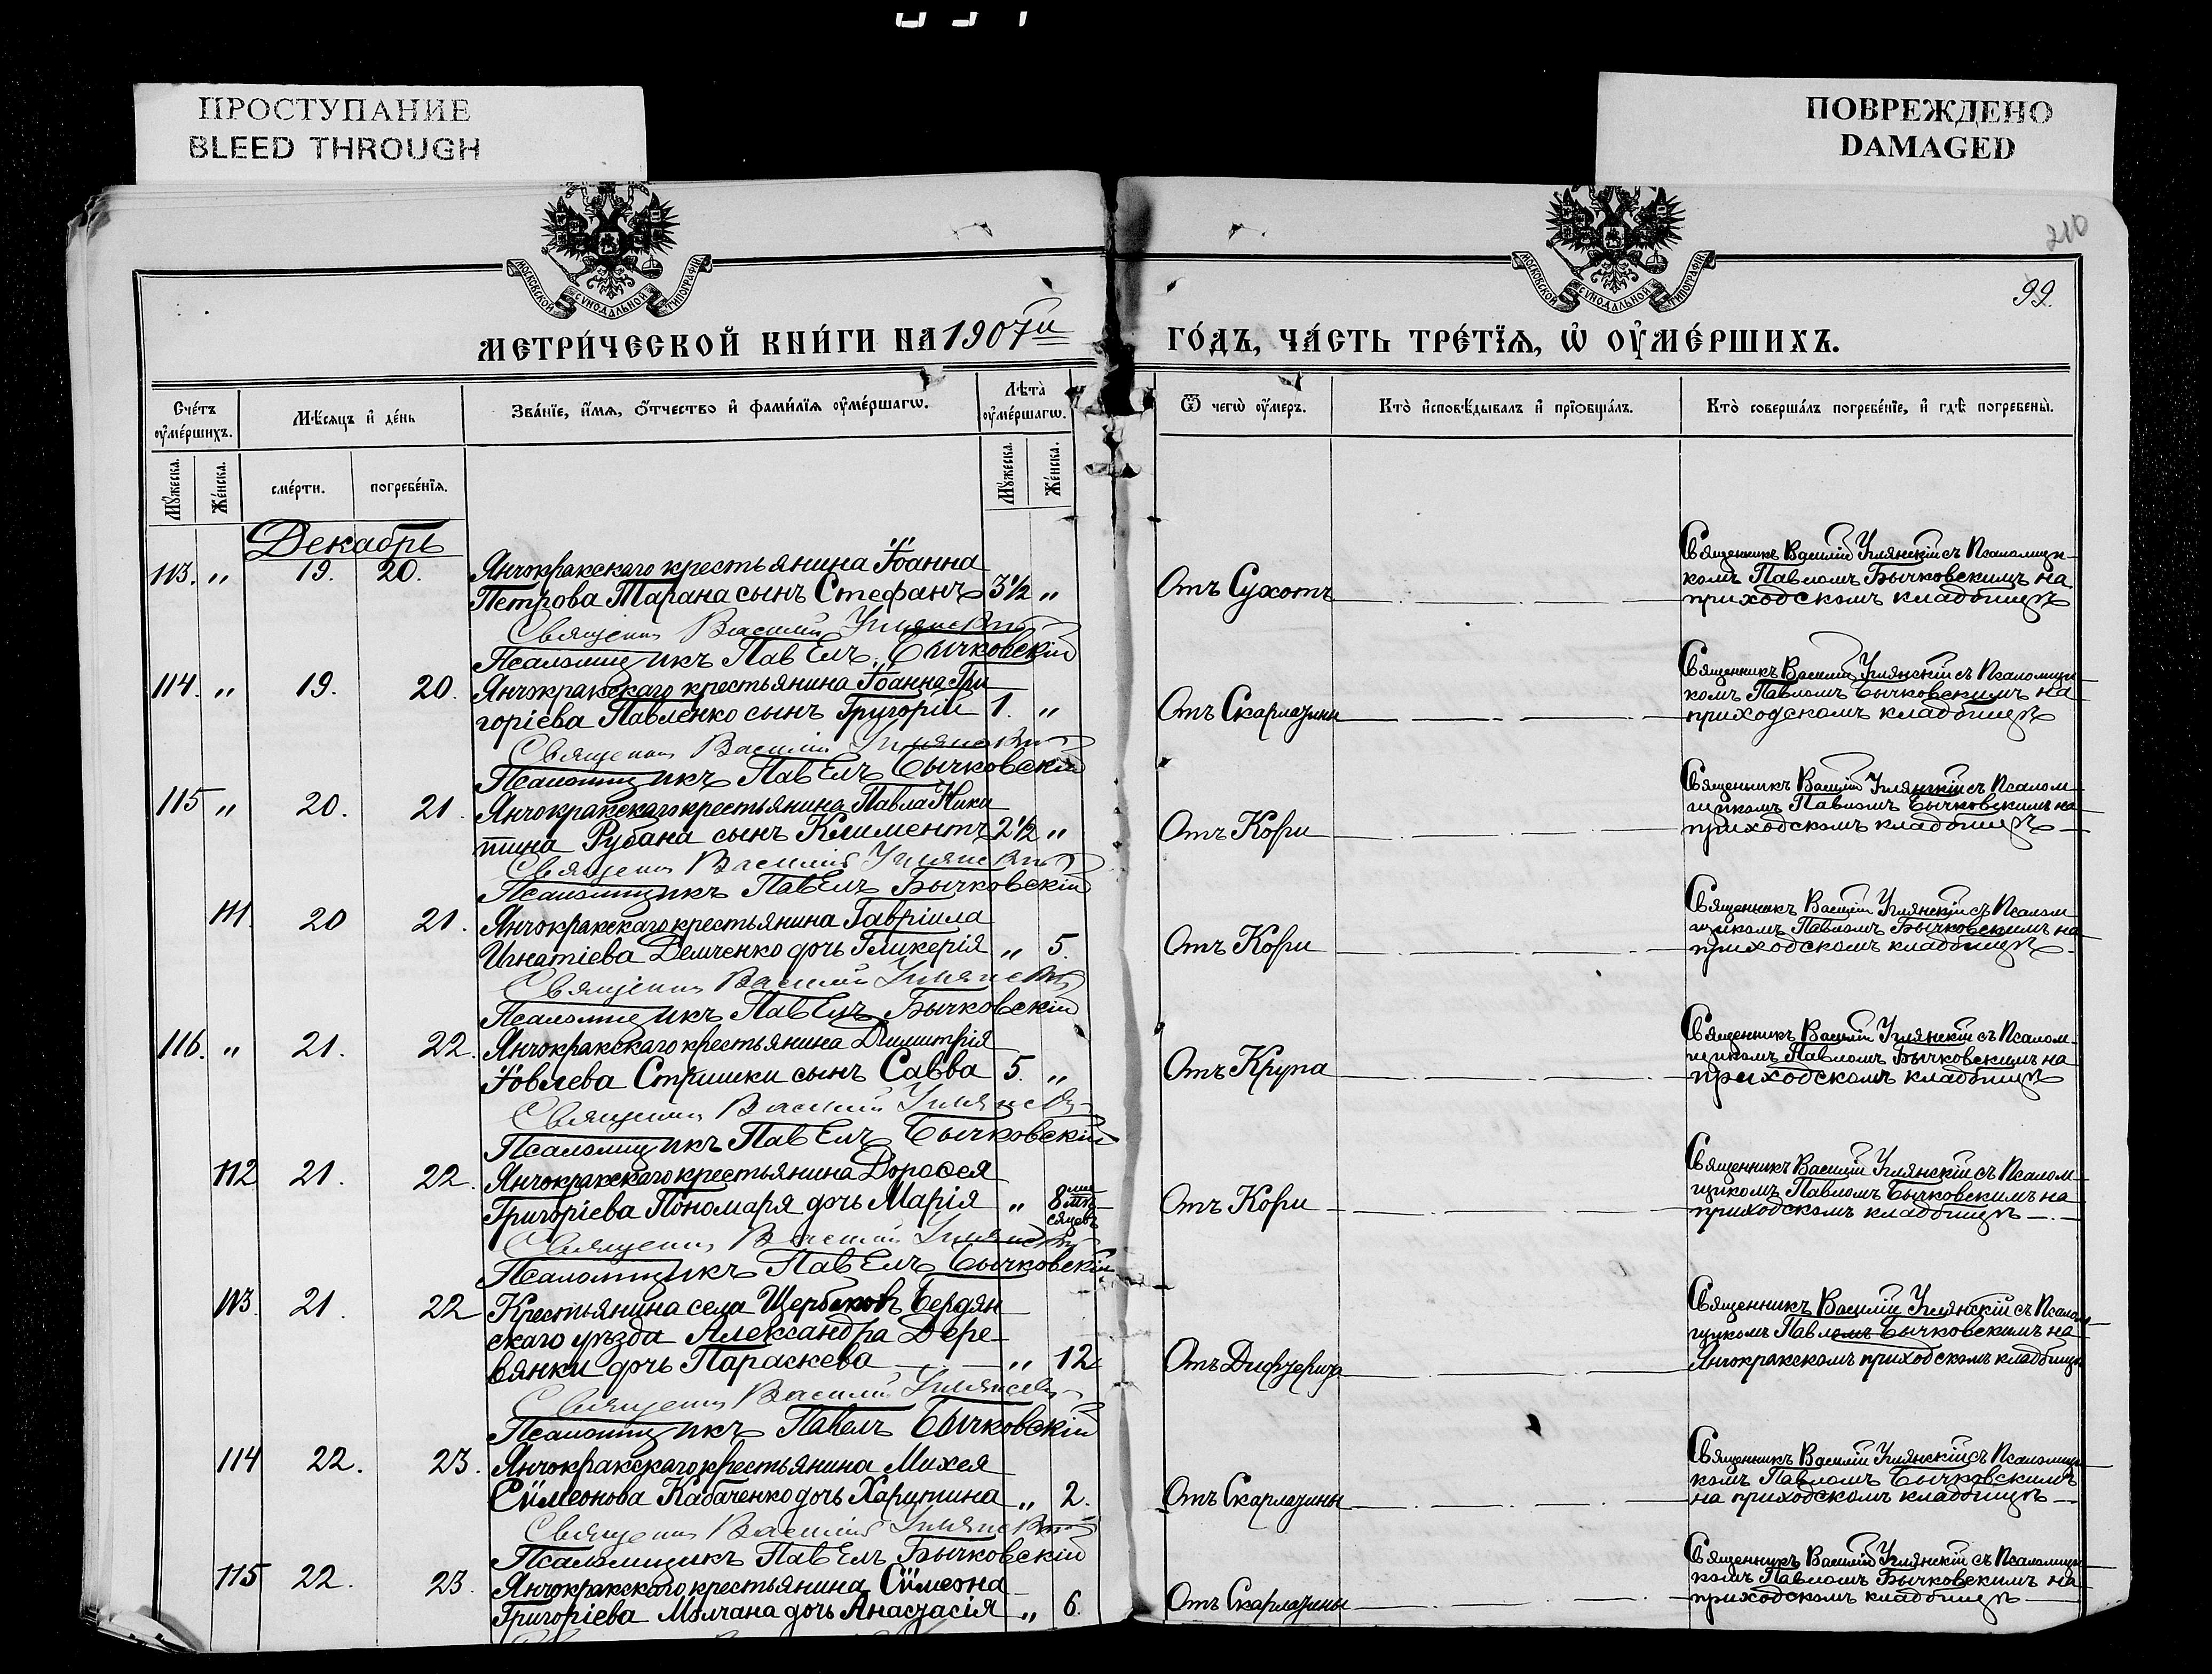 ПРОСТУПАНИЕ
BLEED THROUGH
ПОВРЕЖДЕНО
DAMAGED
МОСКОВСКОЙ СѴНОДАЛЬНОЙ ТИПОГРАФІИ
МОСКОВСКОЙ СѴНОДАЛЬНОЙ ТИПОГРАФІИ
210
99.
МЕТРИ́ЧЕСКОЙ КНИ́ГИ НА 1907й
ГО́ДЪ, ЧА́СТЬ ТРЕ́ТЇѦ, Ѡ҆ ОУ҆МЕ́РШИХЪ.
Сче́тъ оу҆ме́ршихъ.
Мѣ́сяцъ и҆ де́нь
Зва́нїе, и҆́мя, ѻ҆́тчество и҆ фами́лїя оу҆ме́ршагѡ.
Лѣта̀ оу҆ме́ршагѡ.
Ѿ чегѡ̀ оу҆́меръ.
Кто̀ и҆сповѣ́дывалъ и҆ прїѻбща́лъ.
Кто̀ соверша́лъ погребе́нїе, и҆ гдѣ̀ погребены̀.
Му́жеска.
Же́нска.
сме́рти.
погребе́нїя.
Му́жеска.
Же́нска.
Декабрь
113. „ 19. 20. Янчокракскаго крестьянина Іоанна
Петрова Тарана сынъ Стефанъ 3½ „
Отъ Сухотъ
Священникъ Василій Углянскій съ Псаломщи-
комъ Павломъ Бычковскимъ на
приходскомъ кладбищѣ
Священникъ Василій Углянскій
Псаломщикъ Павелъ Бычковскій
114. „ 19. 20. Янчокракскаго крестьянина Іоанна Гри
горіева Павленко сынъ Григорій 1. „
Отъ Скарлатины
Священникъ Василій Углянскій съ Псаломщи
комъ Павломъ Бычковскимъ на
приходскомъ кладбищѣ
Священникъ Василій Углянскій
Псаломщикъ Павелъ Бычковскій
115 „ 20. 21. Янчокракскаго крестьянина Павла Ники
тина Рубана сынъ Климентъ 2½ „
Отъ Кори
Священникъ Василій Углянскій съ Псалом
щикомъ Павломъ Бычковскимъ на
приходскомъ кладбищѣ
Священникъ Василій Углянскій
Псаломщикъ Павелъ Бычковскій
111. 20 21. Янчокракскаго крестьянина Гавріила
Игнатіева Демченко дочь Гликерія „ 5.
Отъ Кори
Священникъ Василій Углянскій съ Псалом
щикомъ Павломъ Бычковскимъ на
приходскомъ кладбищѣ
Священникъ Василій Углянскій
Псаломщикъ Павелъ Бычковскій
116. „ 21. 22. Янчокракскаго крестьянина Димитрія
Іовлева Стришки сынъ Савва 5. „
Отъ Крупа
Священникъ Василій Углянскій съ Псалом-
щикомъ Павломъ Бычковскимъ на
приходскомъ кладбищѣ
Священникъ Василій Углянскій
Псаломщикъ Павелъ Бычковскій
112 21. 22. Янчокракскаго крестьянина Дороѳея
Григоріева Пономаря дочь Марія „ 8ми мѣ-
сяцевъ
Отъ Кори
Священникъ Василій Углянскій съ Псалом-
щикомъ Павломъ Бычковскимъ на
приходскомъ кладбищѣ
Священникъ Василій Углянскій
Псаломщикъ Павелъ Бычковскій
113. 21. 22 Крестьянина села Щербаковъ Бердян
скаго уѣзда Александра Дере
вянки дочь Параскева „ 12
Отъ Дифтерита
Священникъ Василій Углянскій съ Псалом
щикомъ Павломъ Бычковскимъ на
Янчокракскомъ приходскомъ кладбищѣ
Священникъ Василій Углянскій
Псаломщикъ Павелъ Бычковскій
114 22. 23. Янчокракскаго крестьянина Михея
Сѵмеонова Кабаченко дочь Харитина „ 2.
Отъ Скарлатины
Священникъ Василій Углянскій съ Псаломщи
комъ Павломъ Бычковскимъ
на приходскомъ кладбищѣ
Священникъ Василій Углянскій
Псаломщикъ Павелъ Бычковскій
115 22. 23. Янчокракскаго крестьянина Сѵмеона
Григоріева Молчана дочь Анастасія „ 6.
Отъ Скарлатины
Священникъ Василій Углянскій съ Псаломщи
комъ Павломъ Бычковскимъ на
приходскомъ кладбищѣ